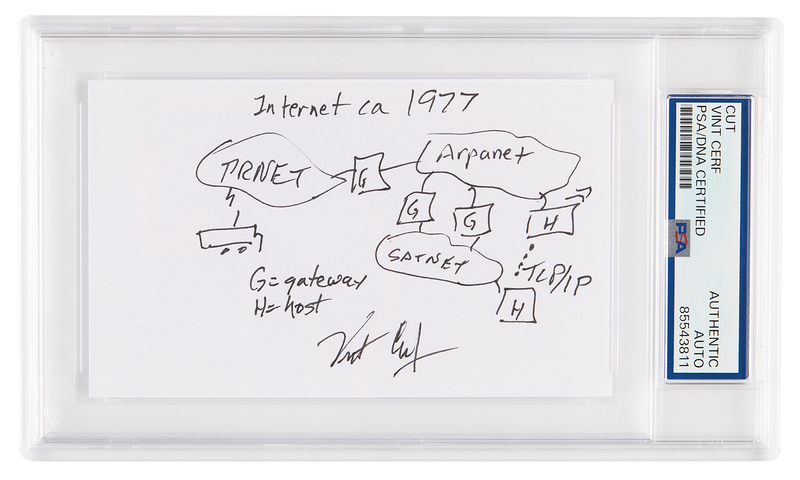 Internet ca 1977
PRNET
G
Arpanet
G
G
H
SATNET
TCP/IP
G = gateway
H = host
H
Vint Cerf
CUT
VINT CERF
PSA/DNA CERTIFIED
PSA
AUTHENTIC
AUTO
85543811